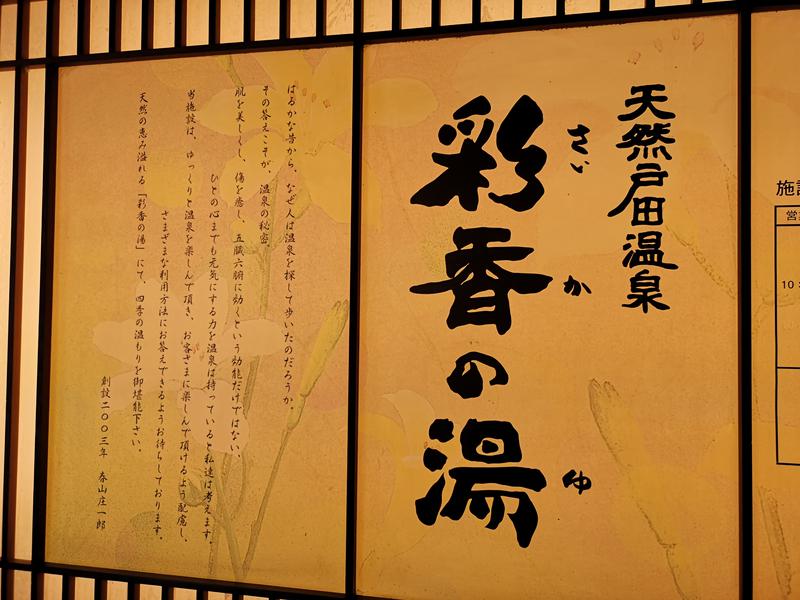 施設
営業
10:
天然戸田温泉
彩香の湯
さい
か
ゆ
はるかな昔から、なぜ人は温泉を探して歩いたのだろうか。
その答えこそが、温泉の秘密。
肌を美しくし、傷を癒し、五臓六腑に効くという効能だけではない、
ひとの心までも元気にする力を温泉は持っていると私達は考えます。
当施設は、ゆっくりと温泉を楽しんで頂き、お客さまに楽しんで頂けるよう配慮し、
さまざまな利用方法にお答えできるようお待ちしております。
天然の恵み溢れる「彩香の湯」にて、四季の温もりを御堪能下さい。
創設二〇〇三年 春山庄一郎